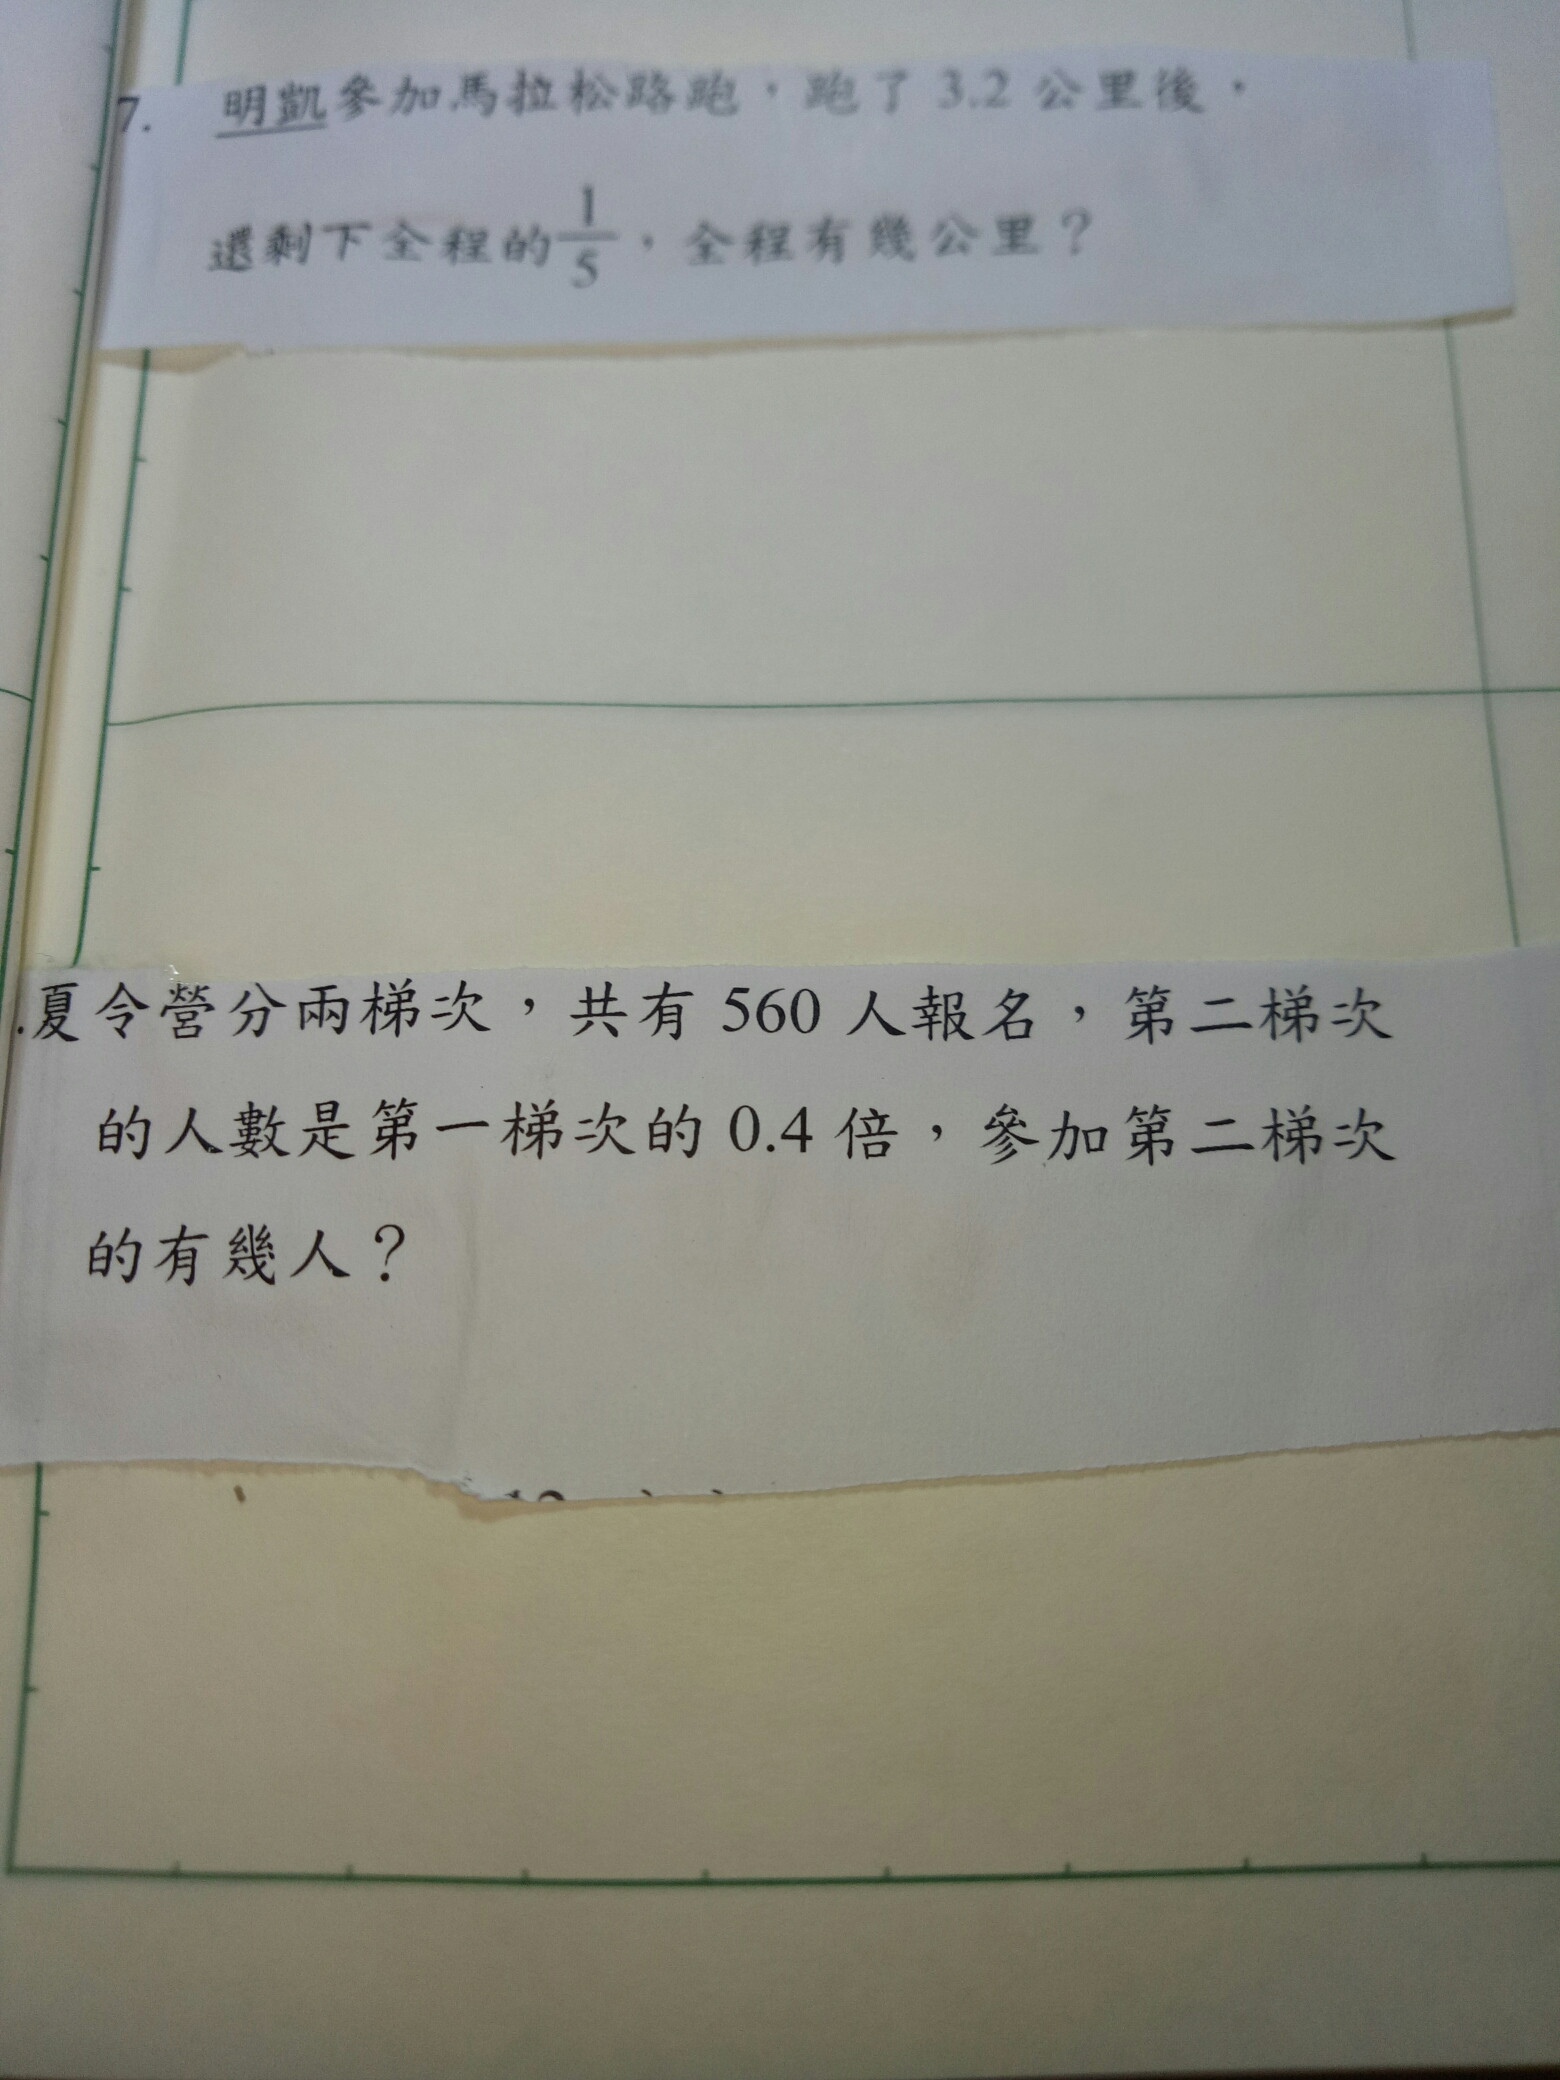 7. 明凱參加馬拉松路跑，跑了 3.2 公里後，
還剩下全程的1/5，全程有幾公里？
.夏令營分兩梯次，共有 560 人報名，第二梯次
的人數是第一梯次的 0.4 倍，參加第二梯次
的有幾人？